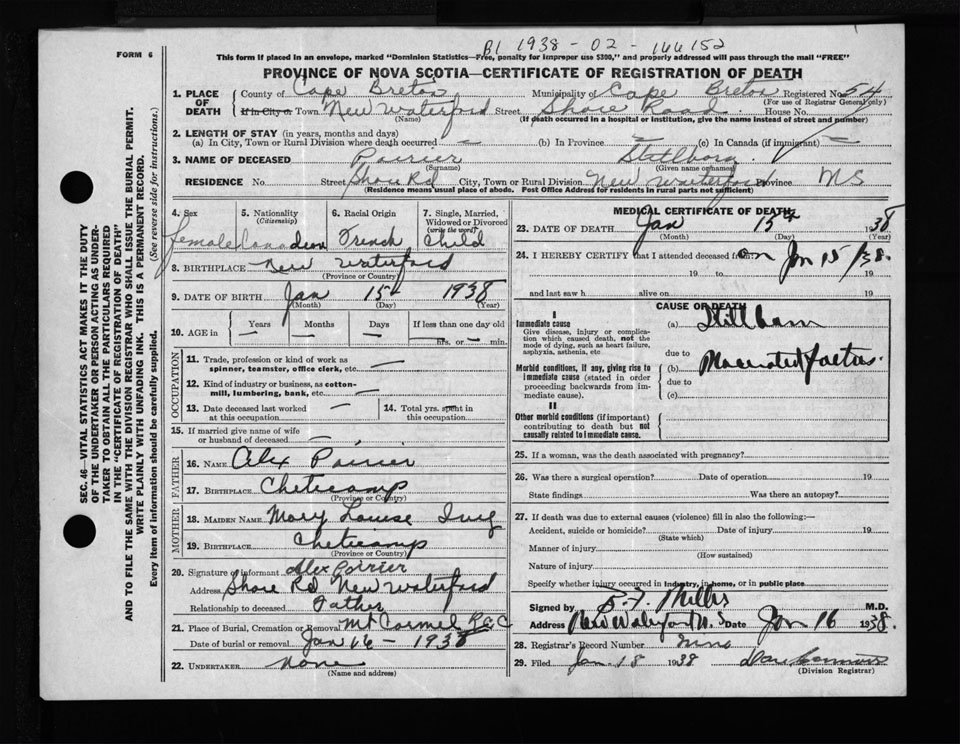 B1 1938 - 02 - 166152
FORM 6
This form if placed in an envelope, marked "Dominion Statistics—Free, penalty for improper use $300," and properly addressed will pass through the mail "FREE"
PROVINCE OF NOVA SCOTIA—CERTIFICATE OF REGISTRATION OF DEATH
1. PLACE OF DEATH County of Cape Breton Municipality of Cape Breton Registered No. 54
(For use of Registrar General only)
If in City or Town New Waterford Street Shore Road House No.
(Name) (If death occurred in a hospital or institution, give the name instead of street and number)
2. LENGTH OF STAY (in years, months and days)
(a) In City, Town or Rural Division where death occurred — (b) In Province — (c) In Canada (if immigrant) —
3. NAME OF DECEASED Poirier Stillborn
(Surname) (Given name or names)
RESIDENCE No. Street Shore Rd City, Town or Rural Division New Waterford Province NS
(Residence means usual place of abode. Post Office Address for residents in rural parts not sufficient)
4. Sex 5. Nationality (Citizenship) 6. Racial Origin 7. Single, Married, Widowed or Divorced (write the word)
female Canadian French Child
8. BIRTHPLACE New Waterford
(Province or Country)
9. DATE OF BIRTH Jan 15th 1938
(Month) (Day) (Year)
10. AGE in Years Months Days If less than one day old
— — — hrs. or — min.
OCCUPATION
11. Trade, profession or kind of work as spinner, teamster, office clerk, etc. —
12. Kind of industry or business, as cotton-mill, lumbering, bank, etc. —
13. Date deceased last worked at this occupation — 14. Total yrs. spent in this occupation. —
15. If married give name of wife or husband of deceased —
FATHER
16. NAME Alex Poirier
17. BIRTHPLACE Cheticamp
(Province or Country)
MOTHER
18. MAIDEN NAME Mary Louise
19. BIRTHPLACE Cheticamp
(Province or Country)
20. Signature of informant Alex Poirier
Address Shore Rd New Waterford
Relationship to deceased Father
21. Place of Burial, Cremation or Removal Mt Carmel R.C.
Date of burial or removal Jan 16 - 1938
22. UNDERTAKER None
(Name and address)
MEDICAL CERTIFICATE OF DEATH
23. DATE OF DEATH Jan 15th 1938
(Month) (Day) (Year)
24. I HEREBY CERTIFY that I attended deceased from on Jan 15/38.
19 to 19
and last saw h alive on 19
CAUSE OF DEATH
I
Immediate cause
Give disease, injury or complication which caused death, not the mode of dying, such as heart failure, asphyxia, asthenia, etc
(a) Stillborn
due to
Morbid conditions, if any, giving rise to immediate cause (stated in order proceeding backwards from immediate cause).
(b) Macerated foetus.
due to
(c)
II
Other morbid conditions (if important) contributing to death but not causally related to immediate cause.
25. If a woman, was the death associated with pregnancy?
26. Was there a surgical operation? Date of operation 19
State findings Was there an autopsy?
27. If death was due to external causes (violence) fill in also the following:—
Accident, suicide or homicide? Date of injury 19
(State which)
Manner of injury
(How sustained)
Nature of injury
Specify whether injury occurred in industry, in home, or in public place
Signed by B. F. Miller M.D.
Address New Waterford N.S. Date Jan 16 1938.
28. Registrar's Record Number nine
29. Filed Jan. 18 1938
(Division Registrar)
SEC. 46—VITAL STATISTICS ACT MAKES IT THE DUTY
OF THE UNDERTAKER OR PERSON ACTING AS UNDER-
TAKER TO OBTAIN ALL THE PARTICULARS REQUIRED
IN THE "CERTIFICATE OF REGISTRATION OF DEATH"
AND TO FILE THE SAME WITH THE DIVISION REGISTRAR WHO SHALL ISSUE THE BURIAL PERMIT.
WRITE PLAINLY WITH UNFADING INK. THIS IS A PERMANENT RECORD.
Every item of information should be carefully supplied. (See reverse side for instructions.)